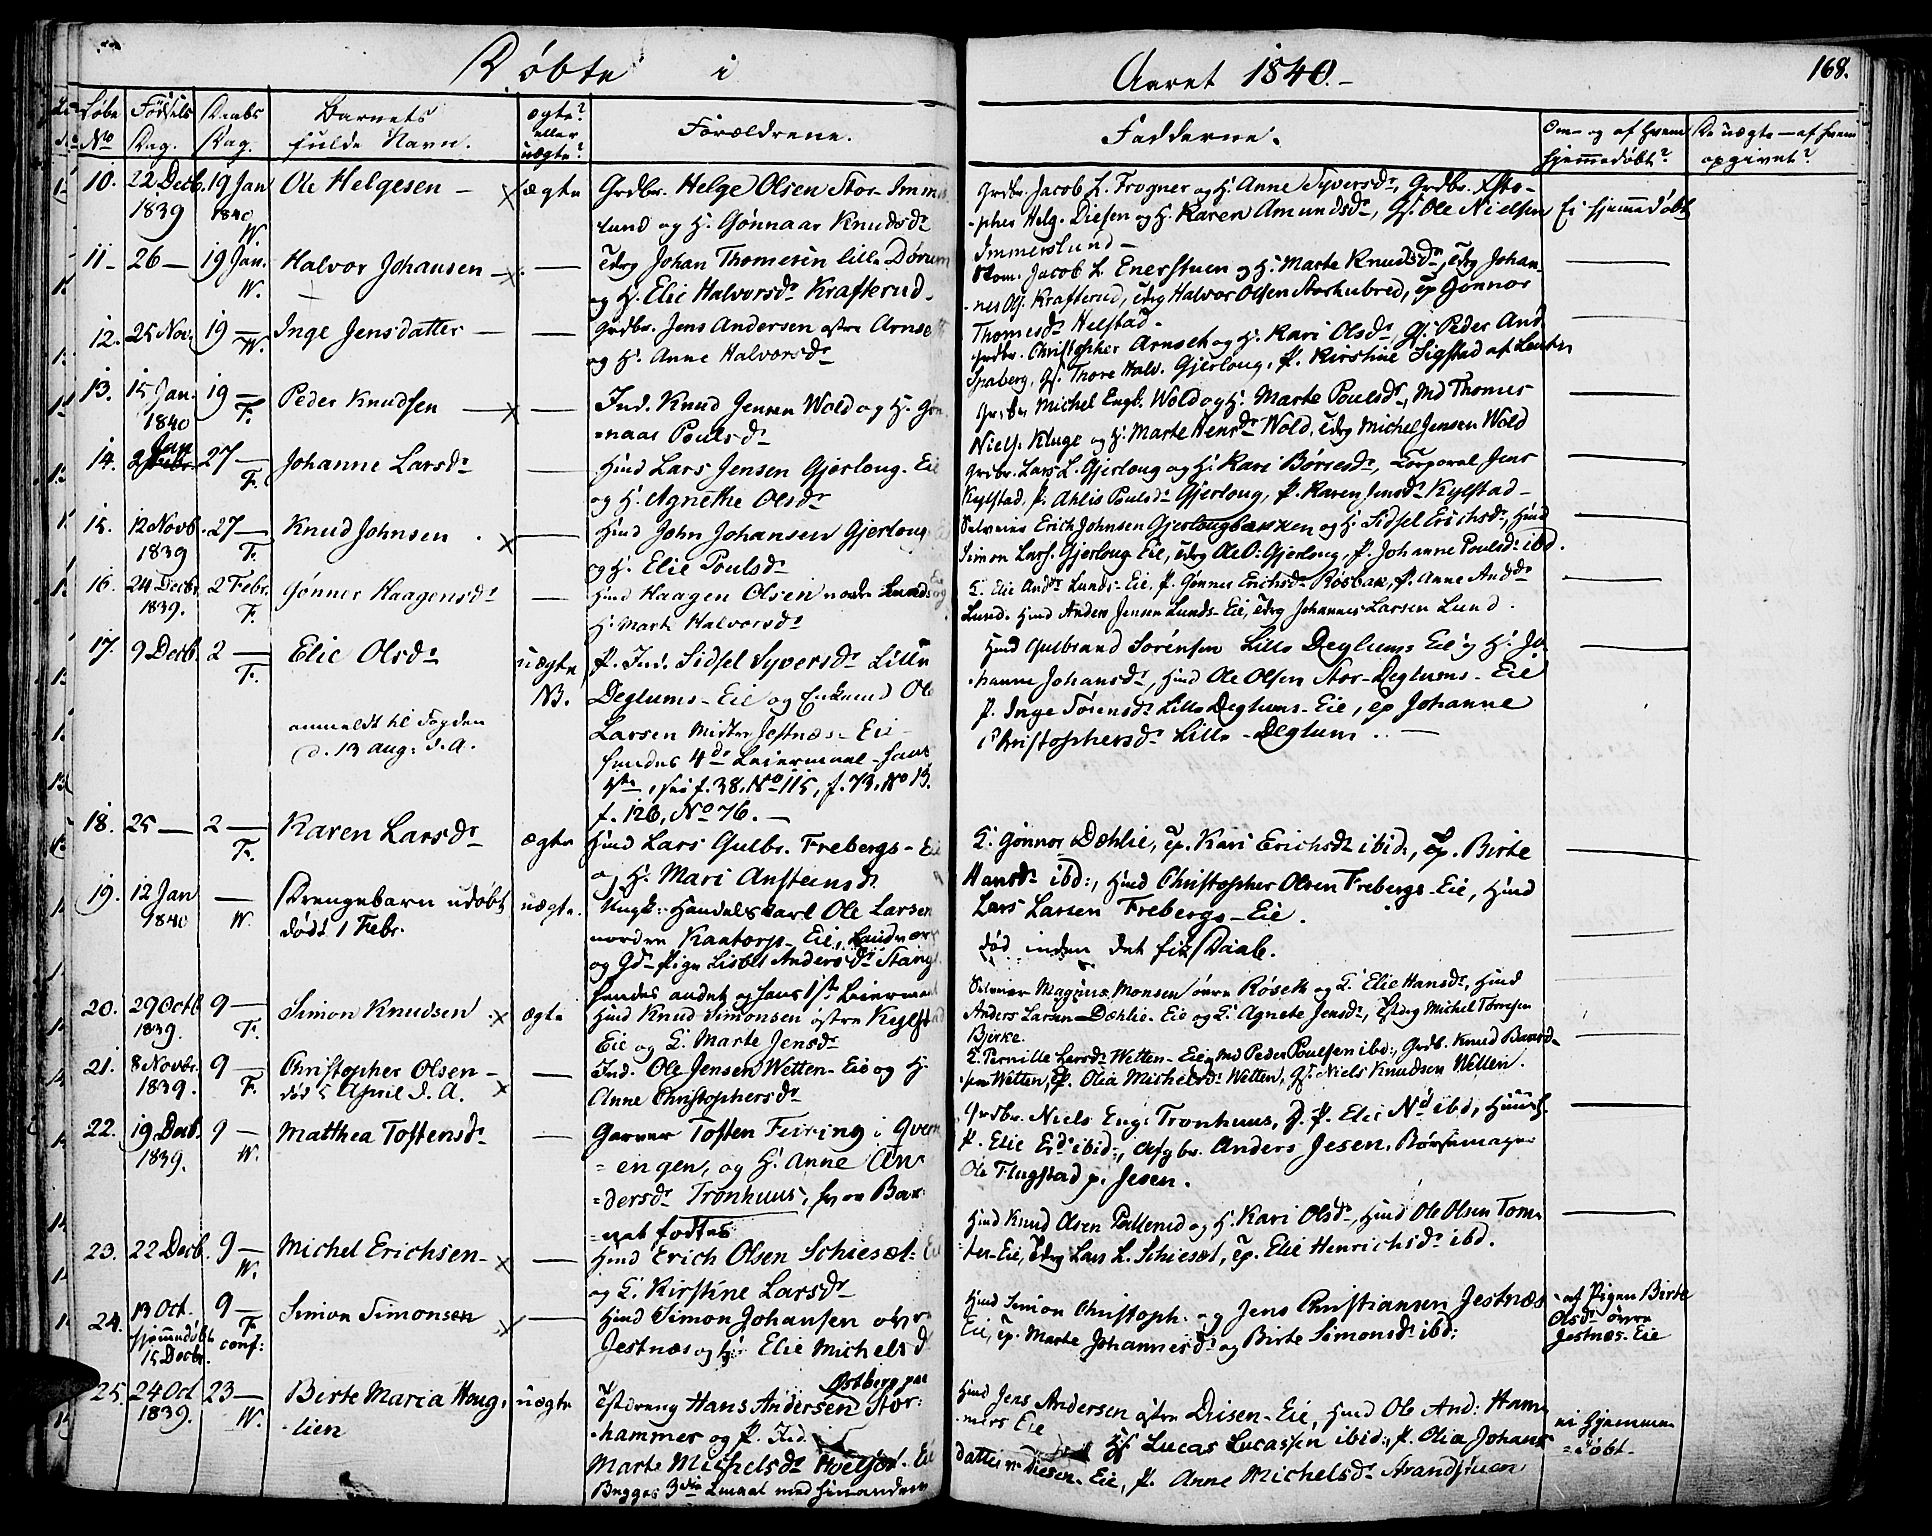 Døbte i Aaret 1840.
168.
Løbe No
Fødsels Dag.
Daabs Dag.
Barnets fulde Navn.
ægte? eller uægte?
Forældrene.
Fadderne.
Om- og af hvem hjemmedøbt?
De uægte - af hvem opgivet?
10. 22 Decb. 19 Jan Ole Helgesen - ægte Grdbr. Helge Olsen Stor-Immes
1839 1840 W. lund og H. Gønnaar Knudsdr
Grdbr. Jacob L. Frogner og H. Anne Syversdr, Grdbr. Xsto-
-pher Helg. Diesen og H. Karen Amundsdr, Gs. Ole Nielsen
Immerslund -
Ei hjemmedøbt
11 - 26 - 19 Jan. W. Halvor Johansen - - Tdrg Johan Thomesen lille Dørum
og H. Elie Halvorsdr Krafterud.
Jacob L. Enerstuen og H. Marte Knudsdr, Tdrg Johan-
-nes Ols. Krafterud, Tdrg Halvor Olsen Storhubred, Tp Gønnor
Thomesdr Helstad -
12. 25 Nov. 19 - W. Inge Jensdatter - - Grdbr. Jens Andersen østre Arnset
og H. Anne Halvorsdr
Grdbr. Christopher Arnset og H. Kari Olsdr, Gs. Peder And.
Spaberg, Gs. Thore Halv. Gjerloug, P. Kirstine Sigstad af Leuten
13. 15 Jan. 1840 19 - F. Peder Knudsen - - Ind. Knud Jensen Wold og H. Gøn
=naar Poulsdr
Grdbr Michel Engb. Wold og H. Marte Poulsdr, Md Thomes
Niels. Kluge og H. Marte Hensdr Wold, Tdrg Michel Jensen Wold
14. 2 Jan 27 - F. Johanne Larsdr - Huusmd Lars Jensen Gjerloug-Eie
og H. Agnethe Olsdr
Grdbr. Lars L. Gjerloug og H. Kari Børresdr, Corporal Jens
Kylstad, P. Ahlis Poulsdr Gjerloug, P. Karen Jensdr Kylstad -
15. 12 Novb. 1839 27 - F. Knud Johnsen - Hmd John Johansen Gjerloug
og H. Elie Poulsdr
Selveier Erich Johnsen Gjerlougbakken og H. Sidsel Erichsdr, Hmd
Simon Lars. Gjerloug Eie, Tdrg Ole O. Gjerloug, P. Johanne Poulsdr ibd.
16. 24 Decbr 1839. 2 Febr. F. Gønner Haagensdr - Hmd Haagen Olsen nordre Lunds Eie og
H. Marte Halvorsdr
E. Elie Andr Lunds-Eie, P. Gønner Erichsdr Rosbak, P. Anne Andr
Lund. Hmd Anders Jensen Lunds-Eie, Tdrg Johannes Larsen Lund.
17. 9 Decb. 2 - F. Elie Olsdr uægte NB. P. Ind. Sidsel Syversdr Lille
Deglums-Eie og Enkemd Ole
Larsen Mister Jestnæs-Eie -
hendes 4de Leiermaal - hans
1ste, see f. 38, No 115, f. 73, No 13.
f. 126, No 76. -
anmeldt til Fogden
d. 13 aug: d. A.
Hmd Gulbrand Sørensen Lille Deglums Eie og H. Jo
hanne Johansdr, Hmd Ole Olsen Stor-Deglums-Eie
P. Inge Sørensdr Lille Deglums-Eie, Tp Johanne
Christophersdr Lille-Deglum . -
18. 25 - 2 - F. Karen Larsdr ægte Hmd Lars Gulbr. Frebergs-Eie
og H. Mari Anstensdr
E. Gønnor Dæhlie, Tp. Kari Erichsdr ibid:, Tp. Birte
Hansdr ibd:, Hmd Christopher Olsen Frebergs-Eie, Hmd
Lars Larsen Frebergs-Eie.
19. 12 Jan 1840 - W. Drengebarn udøbt uægte. Ungk: Handelskarl Ole Larsen
dødt 1 Febr.
nordre Kaatorp-Eie, Landværn
og Gd-Pige Lisbet Andersdr Stang
hendes andet og hans 1ste Leiermaal
død inden det fik Daab.
20. 29 Octb 1839. 9 - F. Simon Knudsen ægte Hmd Knud Simonsen østre Kylstad
Eie og E. Marte Jensdr
Selveier Magnus Monsen øvre Røset og E. Elie Hansdr, Hmd
Anders Larsen Dæhlie-Eie og E. Agnete Jensdr, Tdrg Michel Thoresen
Bjerke.
21. 8 Novbr. 1839. 9 - F. Christopher Olsen - - Ind. Ole Jensen Wetten-Eie og H.
død 5 April d. A. Anne Christophersdr
E. Pernille Larsdr Wetten-Eie, Md Peder Poulsen ibd:, Grdb. Knud
Wetten, P. Olia Michelsdr Wetten, Gs. Niels Knudsen Wetten.
22. 19 Decb. 1839. 9 - W. Matthea Tostensdr - Garver Tosten Feiring i Qvern
=engen, og H. Anne An
=dersdr Tronhuus, hvor Bar
=net fødtes
Grdbr. Niels Eng: Tronhuus, P. Elie Nd ibd,
P. Elie Edr ibid:, Afgbr. Anders Jesen, Børsemager
Ole Flugstad p. Jesen.
23. 22 Decb. 9 - W. Michel Erichsen - - Hmd Erich Olsen Schieset: Eie
og E. Kirstine Larsdr
Hmd Knud Olsen Pallerud og H. Kari Olsdr, Hmd Ole Olsen Tom
ter-Eie, Tdrg Lars L. Schieset, Tp. Elie Henrichsdr ibd.
24. 13 Oct. hjemmedøbt 15 Decbr. 9 - F. conf: Simon Simonsen - Hmd Simon Johansen øvre
Jestnæs og H. Elie Michelsd
Hmd Simon Christoph. og Jens Christiansen Jestnæs
Eie, Tp. Marte Johannesdr og Birte Simonsdr ibd:
af Pigen Birte
Olsdr øvre
Jestnæs-Eie
25. 24 Oct 1839. 23 - W. Birte Maria Houg, uægte Tstdreng Hans Andersen Stor:
-lien
Østberg paa
-hammer og P. Ind.
Marte Michelsdr Hoelset-Eie
Begges 3die Leiermaal med hinanden
Hmd Jens Andersen østre Disen-Eie, Hmd Ole And: Ham
mers Eie
Gs Lucas Lucassen ibid:, P. Olia Johans
datter Disen-Eie, P. Anne Michelsdr Strandstuen
ei hjemme
=døbt.